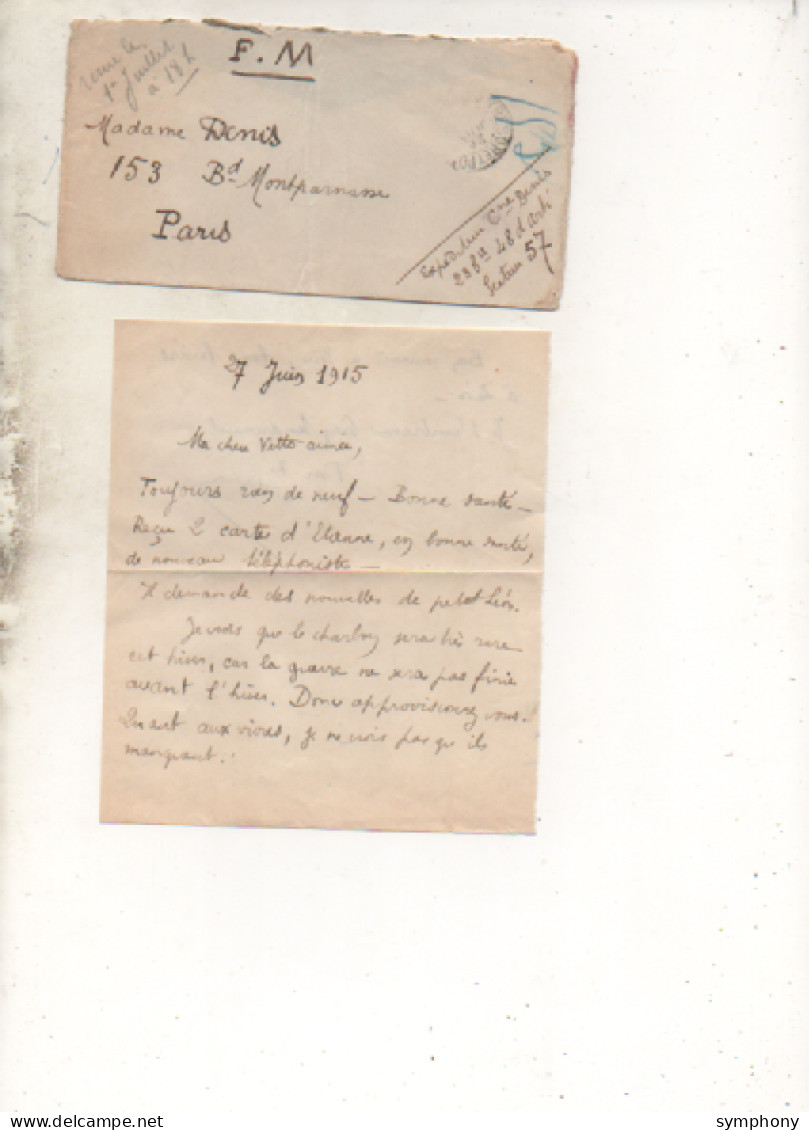 reçue le
1er Juillet
à 18h
F.M
Madame Denis
153 Bd Montparnasse
Paris
Expéditeur Cne Denis
23e Bie 48 d'Arti
Secteur 57
27 Juin 1915
Ma chère Vette aimée,
Toujours rien de neuf — Bonne santé —
Reçu 2 cartes d'Etienne, en bonne santé,
de nouveau téléphoniste —
Il demande des nouvelles de petit Léon.
Je crois que le charbon sera très rare
cet hiver, car la guerre ne sera pas finie
avant l'hiver. Donc approvisionnez vous.
Quant aux vivres, je ne crois pas qu'ils
manquent.
delcampe.net
symphony